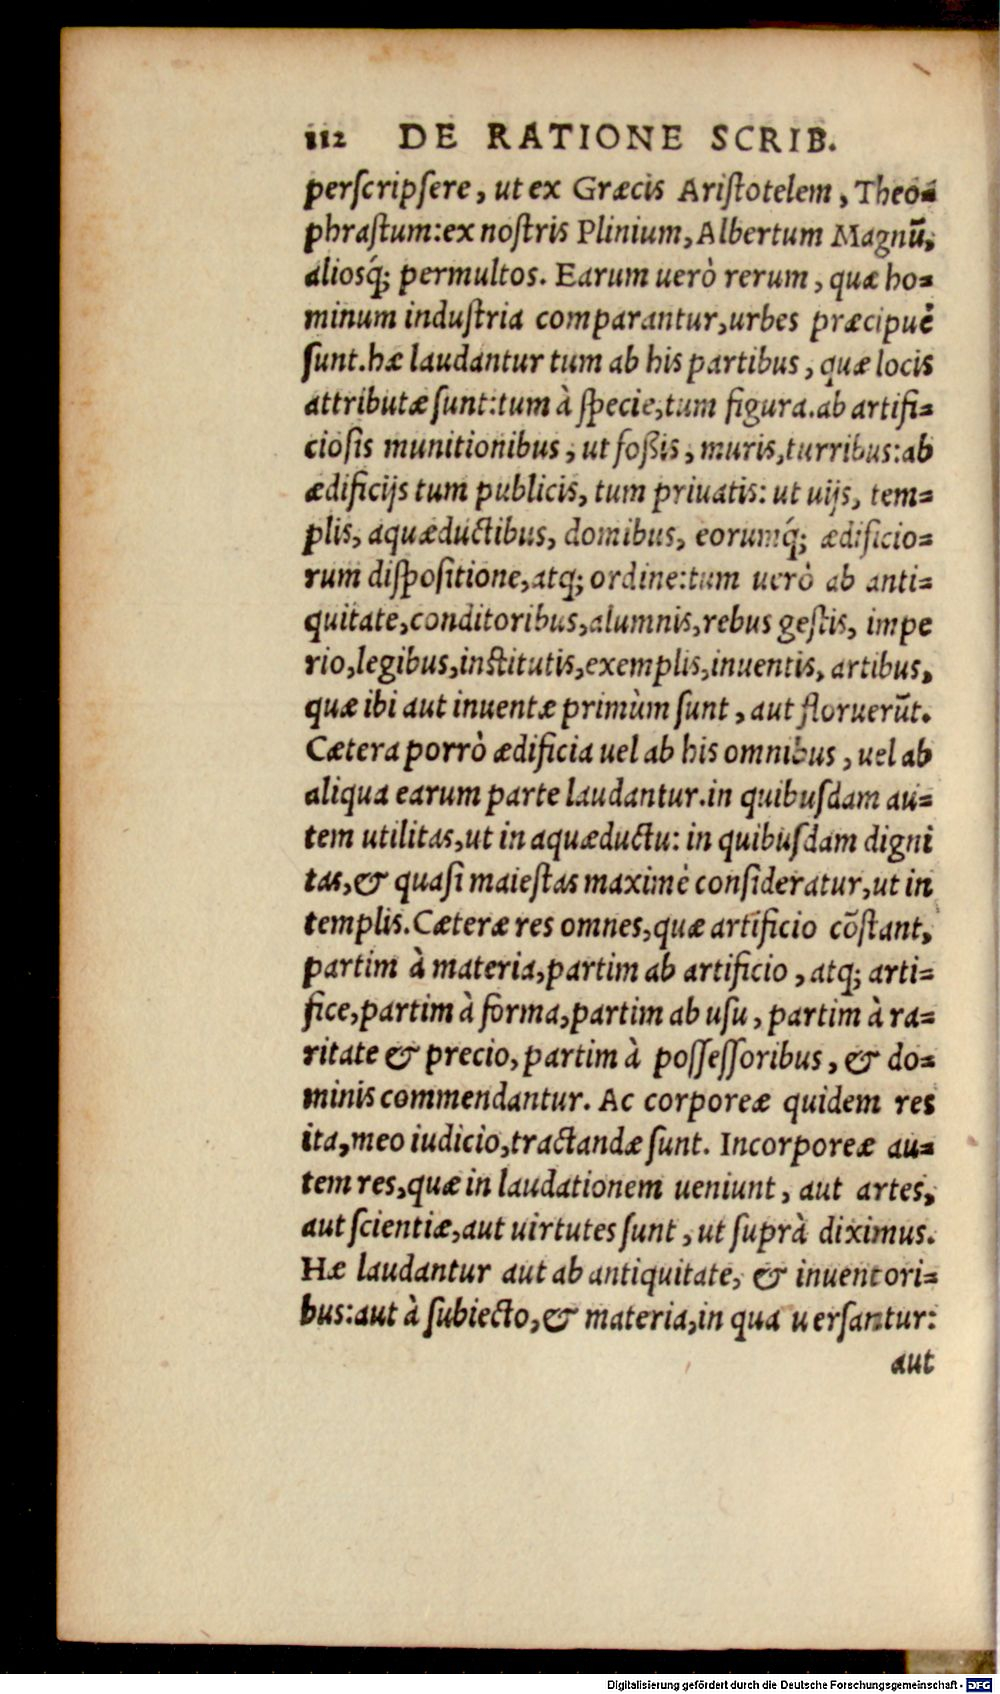 112 DE RATIONE SCRIB.
perſcripſere, ut ex Græcis Ariſtotelem, Theo-
phraſtum: ex noſtris Plinium, Albertum Magnū,
aliosq́; permultos. Earum uerò rerum, quæ ho-
minum induſtria comparantur, urbes præcipuè
ſunt. hæ laudantur tum ab his partibus, quæ locis
attributæ ſunt: tum à ſpecie, tum figura. ab artifi-
cioſis munitionibus, ut foßis, muris, turribus: ab
ædificijs tum publicis, tum priuatis: ut uijs, tem-
plis, aquæductibus, domibus, eorumq́; ædificio-
rum diſpoſitione, atq; ordine: tum uerò ab anti-
quitate, conditoribus, alumnis, rebus geſtis, impe
rio, legibus, inſtitutis, exemplis, inuentis, artibus,
quæ ibi aut inuentæ primùm ſunt, aut floruerūt.
Cætera porrò ædificia uel ab his omnibus, uel ab
aliqua earum parte laudantur. in quibuſdam au-
tem utilitas, ut in aquæductu: in quibuſdam digni
tas, & quaſi maieſtas maximè conſideratur, ut in
templis. Cæteræ res omnes, quæ artificio cōſtant,
partim à materia, partim ab artificio, atq; arti-
fice, partim à forma, partim ab uſu, partim à ra-
ritate & precio, partim à poſſeſſoribus, & do-
minis commendantur. Ac corporeæ quidem res
ita, meo iudicio, tractandæ ſunt. Incorporeæ au-
tem res, quæ in laudationem ueniunt, aut artes,
aut ſcientiæ, aut uirtutes ſunt, ut ſuprà diximus.
Hæ laudantur aut ab antiquitate, & inuentori-
bus: aut à ſubiecto, & materia, in qua uerſantur:
aut
Digitalisierung gefördert durch die Deutsche Forschungsgemeinschaft - DFG